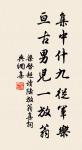 集中什九從軍樂
亘古男兒一放翁
梁啓超讀陸放翁集詞
典網集